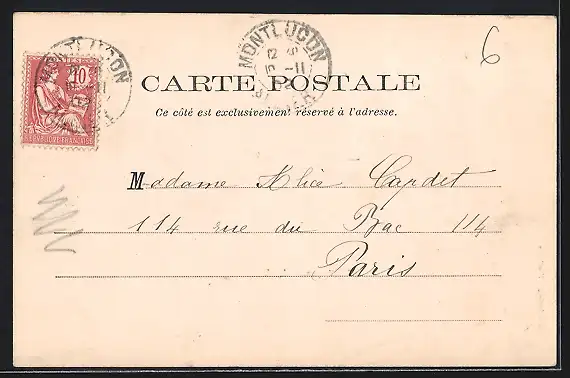 6
10
MONTLUCON
MONTLUCON
CARTE POSTALE
Ce côté est exclusivement réservé à l'adresse.
Madame Alice Capdet
114 rue du Bac 114
Paris